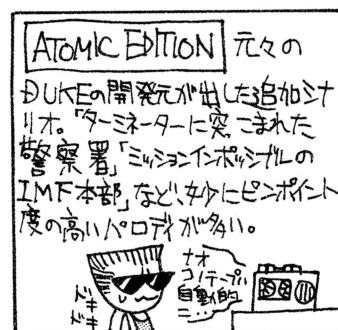 ATOMIC EDITION 元々の
DUKEの開発元が出した追加シナ
リオ。「ターミネーターに突っこまれた
警察署」「ミッションインポッシブルの
IMF本部」など、妙にピンポイント
度の高いパロディが多い。
ナオ
コノテープハ
自動的
ニ…
ドキ
ドキ